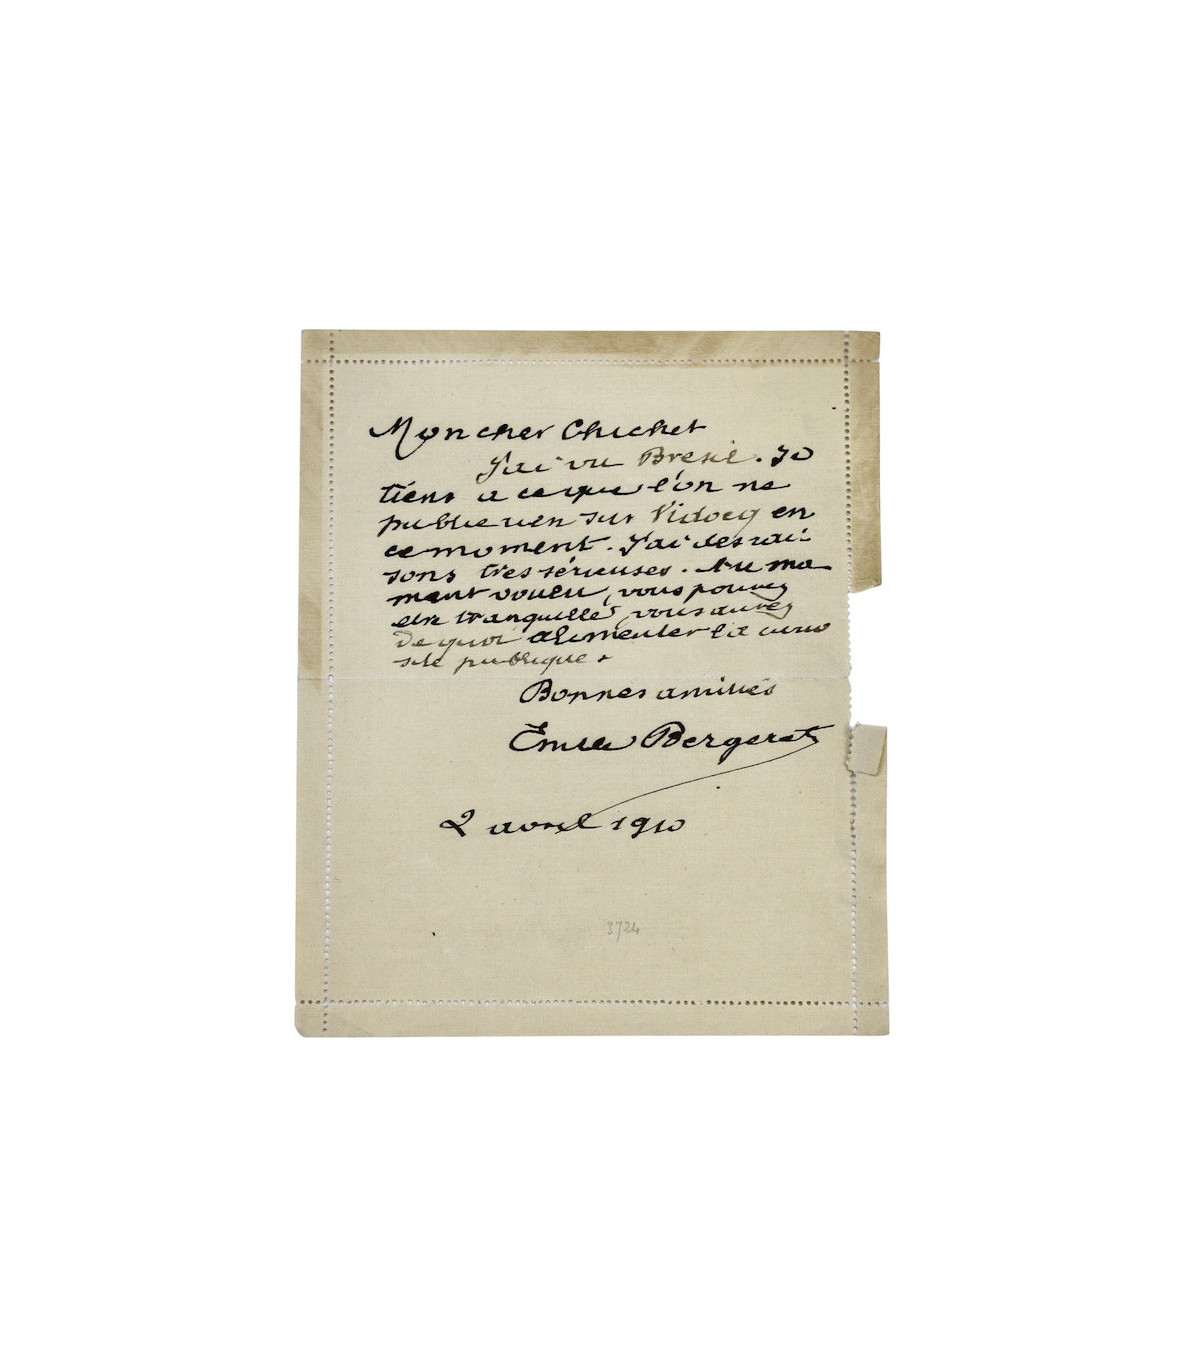 Mon cher Chichet
J'ai vu Bresil. Je
tiens a ce que l'on ne
publie rien sur Vidocq en
ce moment. J'ai des rai-
sons tres sérieuses. Au mo
ment voulu, vous pouvez
etre tranquille, vous aurez
de quoi alimenter la curio
site publique.
Bonnes amitiés
Emile Bergerat
2 avril 1910
3724